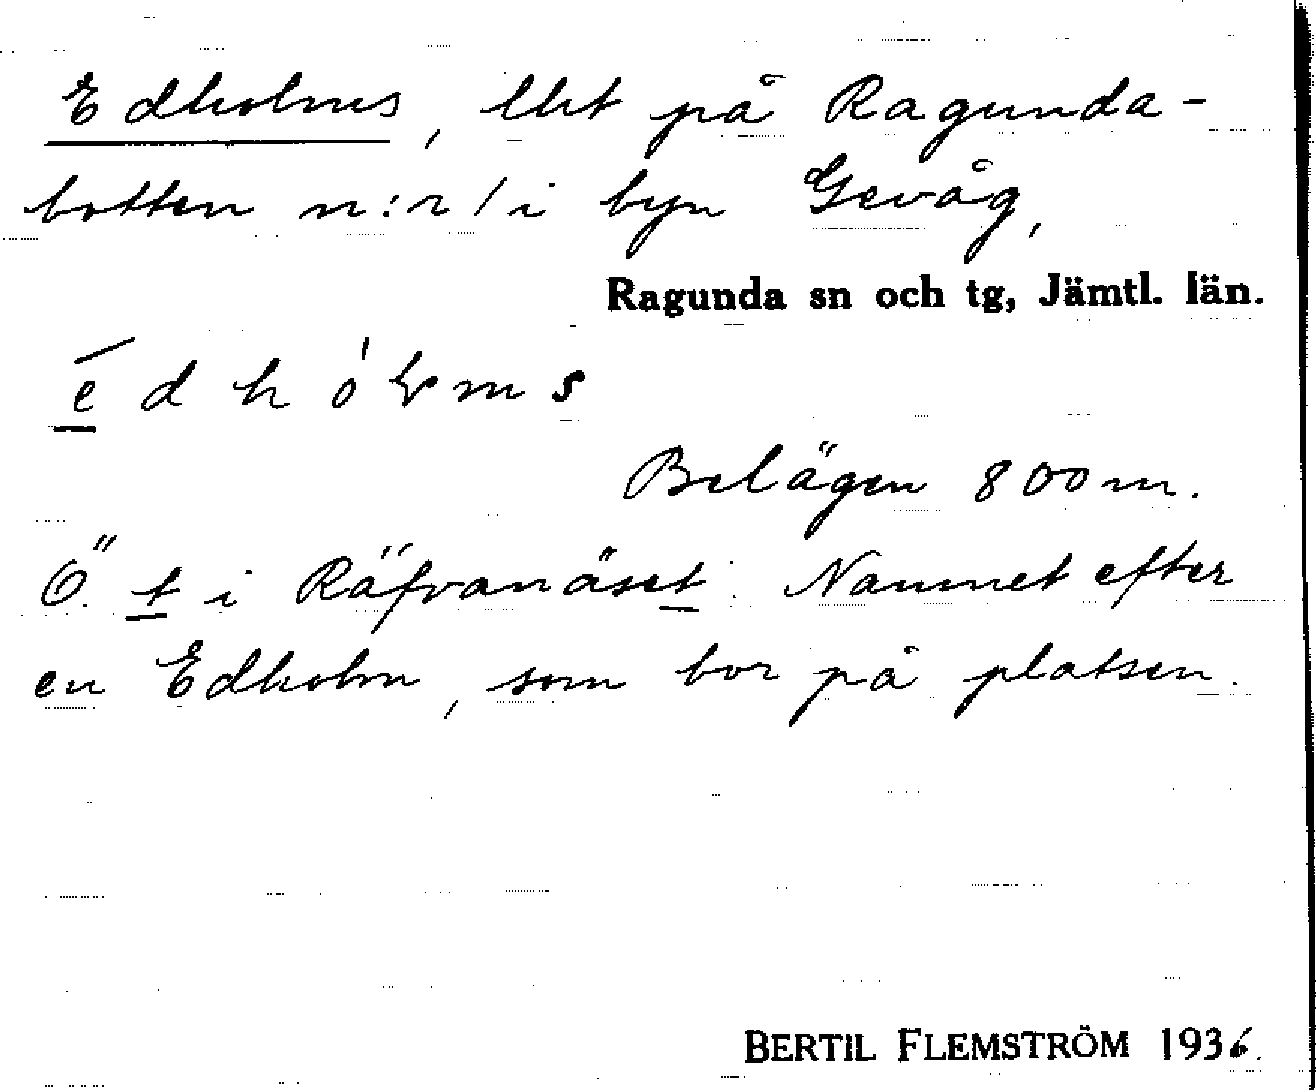 Edholms, lht på Ragunda-
botten n:r 1 i byn Gevåg,
Ragunda sn och tg, Jämtl. län.
é d h ó m s
Belägen 800 m.
Ö. t i Räfvanäset. Namnet efter
en Edholm, som bor på platsen.
BERTIL FLEMSTRÖM 1936.